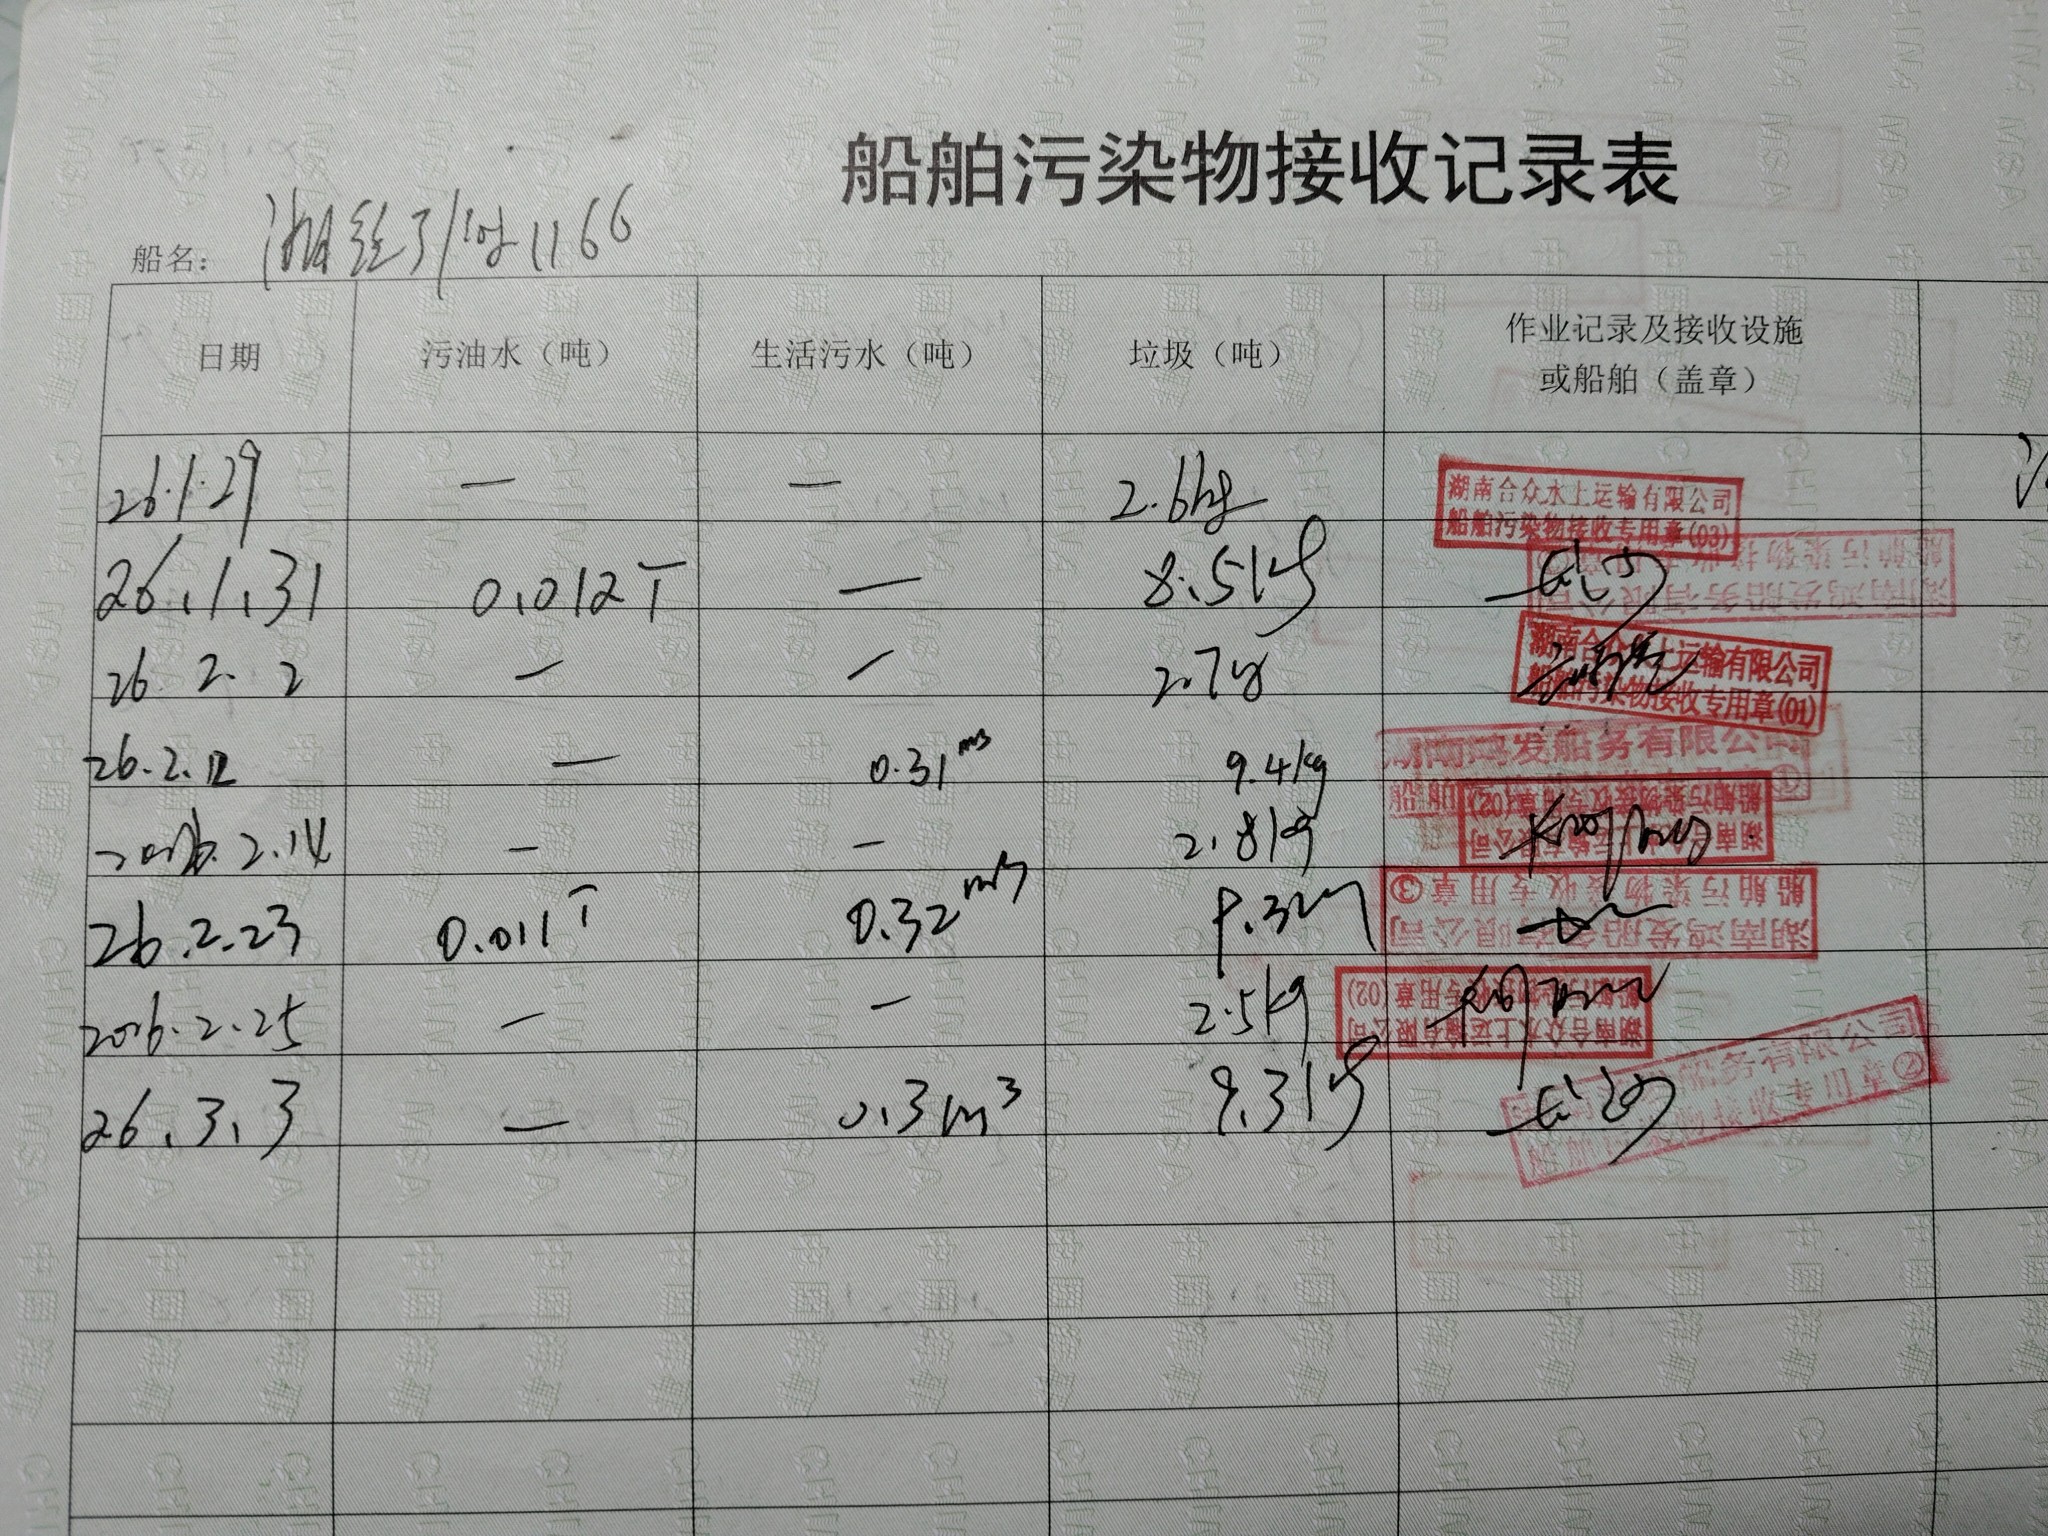 船舶污染物接收记录表
船名： 1166
日期 污油水（吨） 生活污水（吨） 垃圾（吨） 作业记录及接收设施
或船舶（盖章）
26.1.29 — — 2.6kg
湖南合众水上运输有限公司
船舶污染物接收专用章(03)
26.1.31 0.012T — 8.5kg
船舶污染物接收专用章
湖南鸿发船务有限公司
26.2.2 — — 2.7kg
湖南合众水上运输有限公司
船舶污染物接收专用章(01)
26.2.12 — 0.31m3 9.4kg
湖南鸿发船务有限公司
船舶 ①
2026.2.14 — — 2.8kg
船舶污染物接收专用章(02)
湖南合众水上运输有限公司
26.2.23 0.011T 0.32m3 9.3kg
船舶污染物接收专用章③
湖南鸿发船务有限公司
2026.2.25 — — 2.5kg
船舶污染物接收专用章(02)
湖南合众水上运输有限公司
26.3.3 — 0.3m3 9.3kg
船务有限公司
船舶污染物接收专用章②